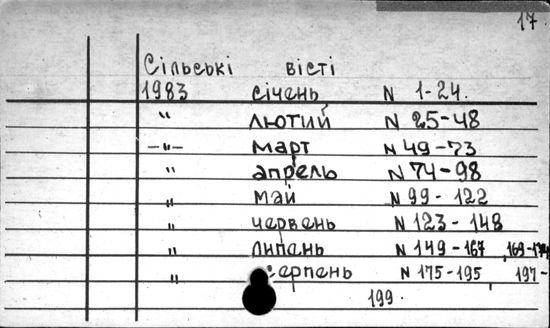 17
Сільські вісті
1983 січень N 1-24.
" лютий N 25-48
-"- март N 49-73
" апрель N 74-98
" май N 99-122
" червень N 123-148
" липень N 149-167, 169-174
" серпень N 175-195, 197-
199.